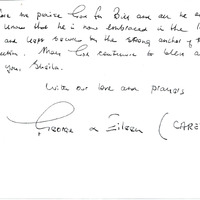 we praise God for Bill and all he
know that he is now embraced in the
and kept secure by the strong anchor of
May God continue to bless
you, Sheila.
With our love and prayers
George & Eileen (CARE